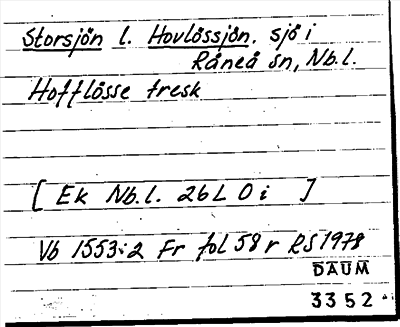 Storsjön l. Hovlössjön. sjö i
Råneå sn, Nb.l.
Hofflösse tresk
[ Ek Nb.l. 26 L 0 i ]
Vb 1553:2 Fr fol 58 r RS 1978
DAUM
3352